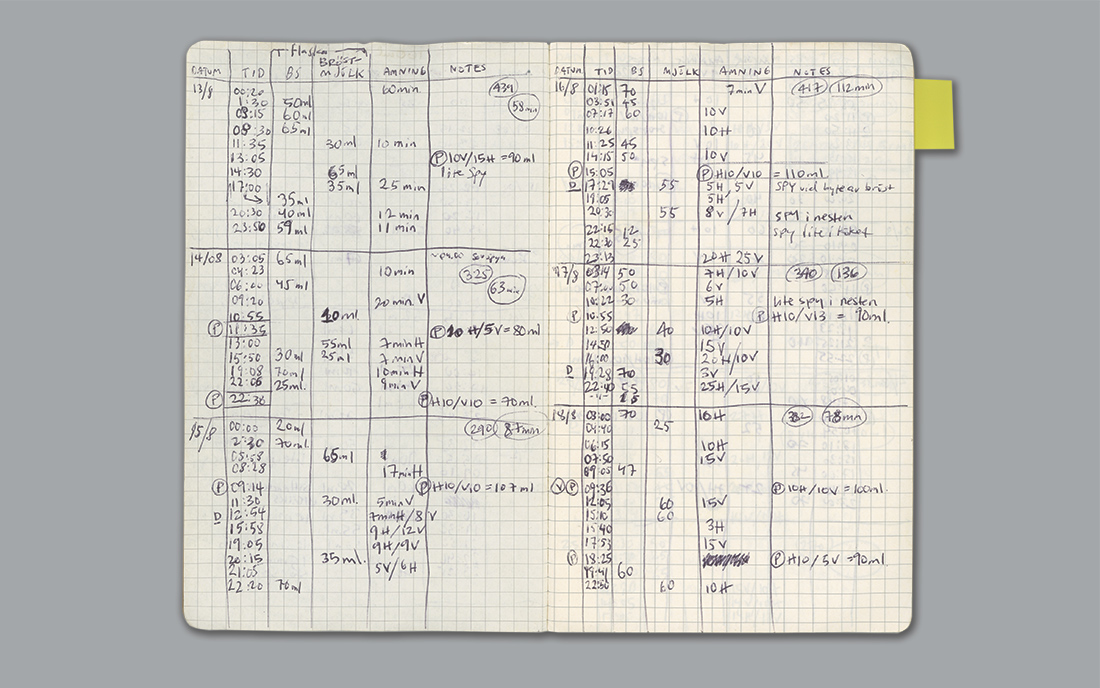 Flaska
BRÖST-
DATUM TID BS MJÖLK AMNING NOTES
13/8 00:20 60min 439
1:30 50ml 58min
03:15 60ml
08:30 65ml
11:35 30ml 10min
13:05 P 10V/15H=90ml
14:30 65ml lite spy
17:00 35ml 25min
35ml
20:30 40ml 12min
23:50 59ml 11min
14/08 03:05 65ml
04:23 10min 325
06:00 45ml 63min
09:20 20min V
10:55
P 11:35 P H/5V=80ml
13:00 55ml 7minH
15:50 30ml 25ml 7minV
19:08 70ml 10minH
22:06 25ml. 9minV
P 22:36 P H10/V10=70ml.
15/8 00:00 20ml 290 87min
2:30 70ml.
05:58 65ml
08:28 17minH
P 09:14 P H10/V10=107ml
11:30 30ml. 5minV
D 12:54 7minH/8V
15:58 9H/12V
19:05 9H/9V
20:15 35ml.
21:05 5V/6H
22:20 70ml
DATUM TID BS MJÖLK AMNING NOTES
16/8 01:15 70 7minV 417 112min
03:51 45
07:17 60 10V
10:26 10H
11:25 45
14:15 50 10V
P 15:05 P H10/V10=110ml
D 17:29 55 5H/5V SPY vid byte av bröst
19:05 5H
20:30 55 8V/7H SPY i nesten
22:15 12 spy lite i
22:30 25
23:13 20H 25V
17/8 50 7H/10V 340 136
07:00 50 6V
10:22 30 5H lite spy i nesten
P 10:55 P H10/V13=90ml.
12:50 40 10H/10V
14:50 15V
16:00 30 20H/10V
D 19:28 70 3V
22:40 55 25H/15V
-"-
18/8 03:00 70 10H 78min
04:40 25
06:15 10H
07:50 15V
09:05 47
V P 09:36 P 10H/10V=100ml.
12:05 60 15V
15:10 60
15:40 3H
17:53 15V
P 18:25 P H10/5V=90ml.
19:41 60
22:30 60 10H